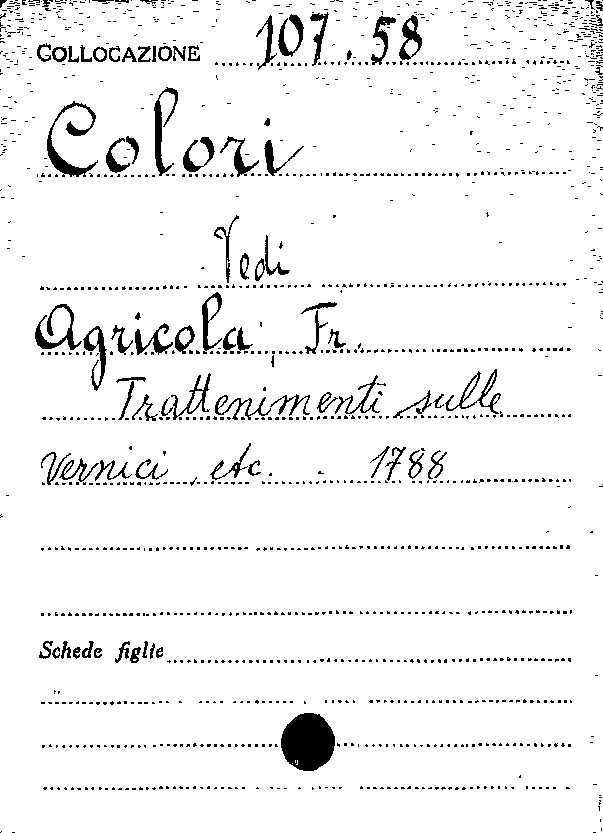 COLLOCAZIONE 107.58
Colori
Vedi
Agricola, Fr.
Trattenimenti sulle
vernici, etc. - 1788
Schede figlie